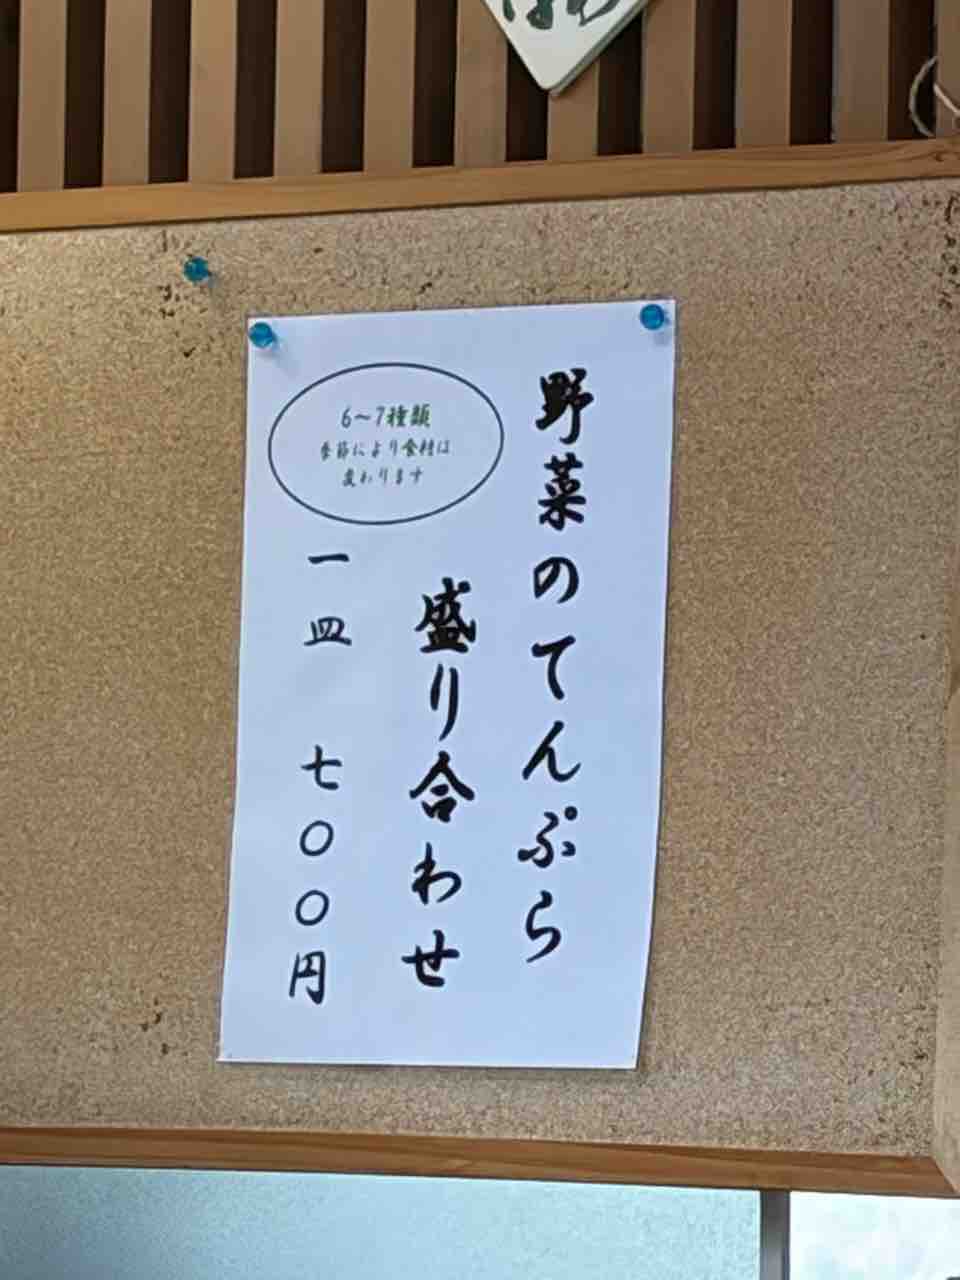 野菜のてんぷら
盛り合わせ
6〜7種類
季節により食材は
変わります
一皿 七〇〇円